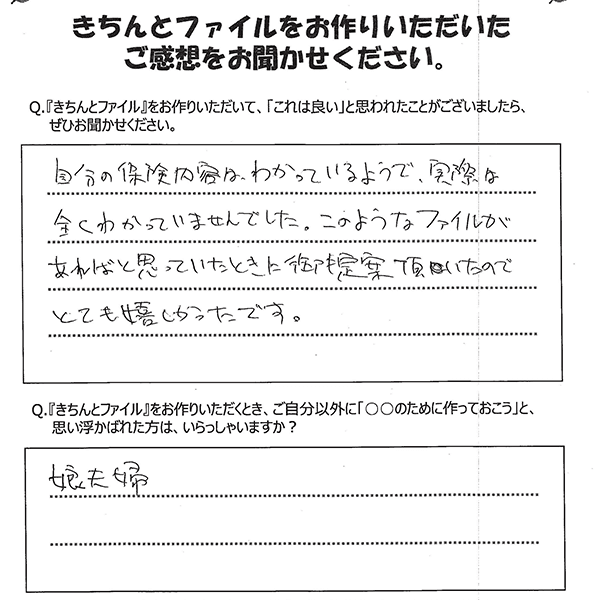 きちんとファイルをお作りいただいた
ご感想をお聞かせください。
Q.『きちんとファイル』をお作りいただいて、「これは良い」と思われたことがございましたら、
ぜひお聞かせください。
自分の保険内容は、わかっているようで、実際は
全くわかっていませんでした。このようなファイルが
あればと思っていたときに御提案頂いたので
とても嬉しかったです。
Q.『きちんとファイル』をお作りいただくとき、ご自分以外に「○○のために作っておこう」と、
思い浮かばれた方は、いらっしゃいますか？
娘夫婦